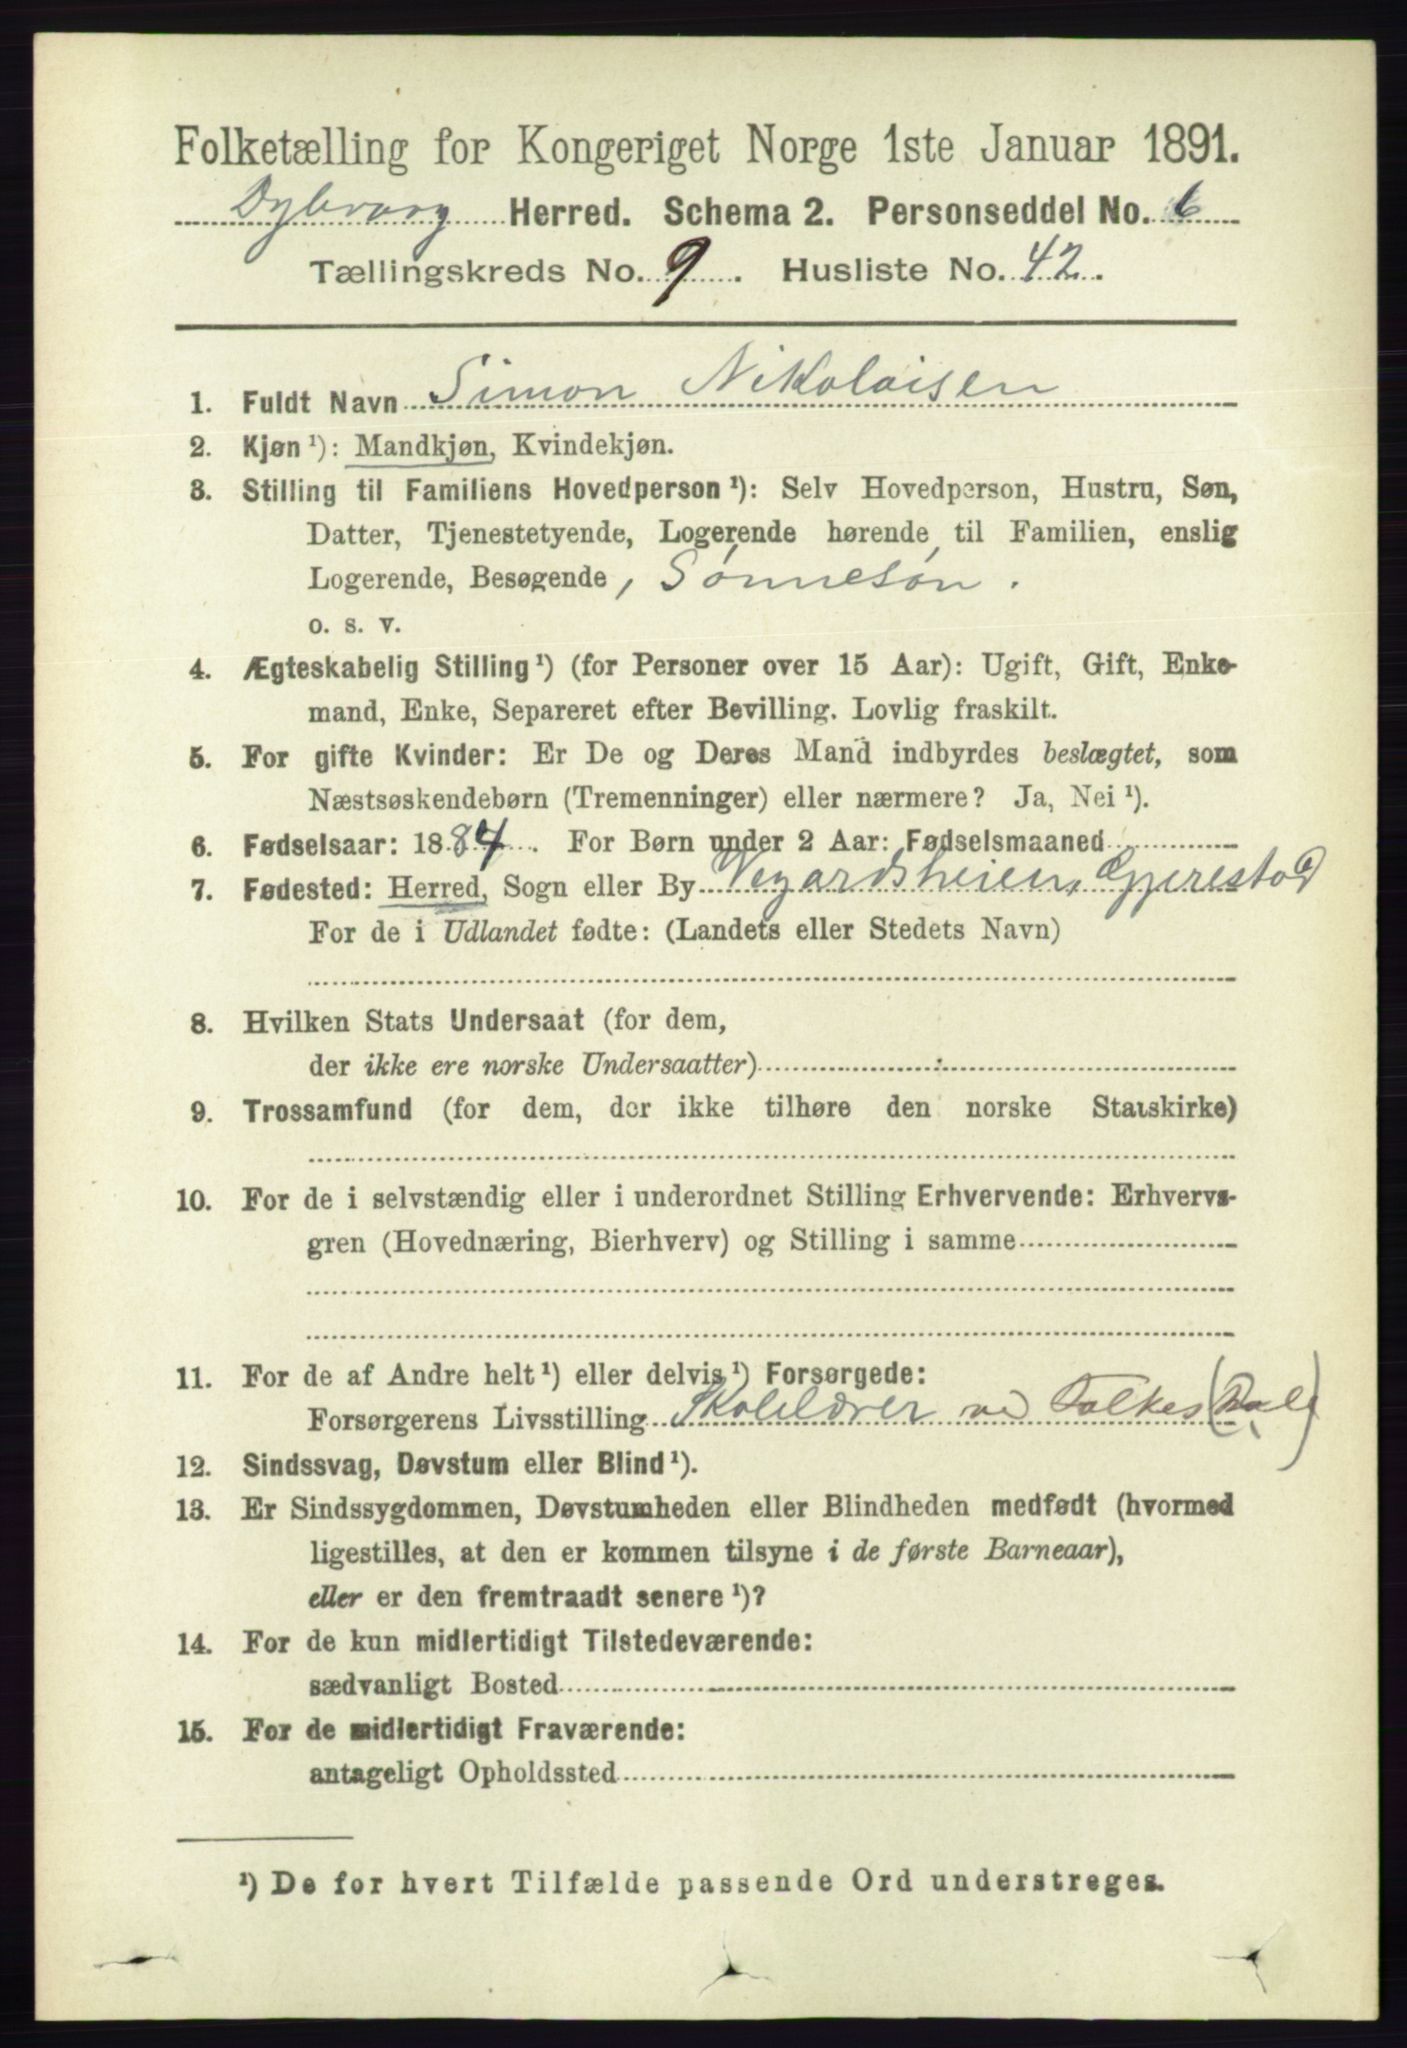 Folketælling for Kongeriget Norge 1ste Januar 1891.
Dybvaag Herred. Schema 2. Personseddel No. 6
Tællingskreds No. 9. Husliste No. 42.
1. Fuldt Navn Simon Nikolaisen
2. Kjøn ¹): Mandkjøn, Kvindekjøn.
3. Stilling til Familiens Hovedperson ¹): Selv Hovedperson, Hustru, Søn,
Datter, Tjenestetyende, Logerende hørende til Familien, enslig
Logerende, Besøgende, Sønnesøn.
o. s. v.
4. Ægteskabelig Stilling ¹) (for Personer over 15 Aar): Ugift, Gift, Enke-
mand, Enke, Separeret efter Bevilling. Lovlig fraskilt.
5. For gifte Kvinder: Er De og Deres Mand indbyrdes beslægtet, som
Næstsøskendebørn (Tremenninger) eller nærmere? Ja, Nei ¹).
6. Fødselsaar: 1884. For Børn under 2 Aar: Fødselsmaaned
7. Fødested: Herred, Sogn eller By Vegardsheien, Gjerestad
For de i Udlandet fødte: (Landets eller Stedets Navn)
8. Hvilken Stats Undersaat (for dem,
der ikke ere norske Undersaatter)
9. Trossamfund (for dem, der ikke tilhøre den norske Statskirke)
10. For de i selvstændig eller i underordnet Stilling Erhvervende: Erhvervs-
gren (Hovednæring, Bierhverv) og Stilling i samme
11. For de af Andre helt ¹) eller delvis ¹) Forsørgede:
Forsørgerens Livsstilling Skolelærer ved Folkes(kole)
12. Sindssvag, Døvstum eller Blind ¹).
13. Er Sindssygdommen, Døvstumheden eller Blindheden medfødt (hvormed
ligestilles, at den er kommen tilsyne i de første Barneaar),
eller er den fremtraadt senere ¹)?
14. For de kun midlertidigt Tilstedeværende:
sædvanligt Bosted
15. For de midlertidigt Fraværende:
antageligt Opholdssted
¹) De for hvert Tilfælde passende Ord understreges.